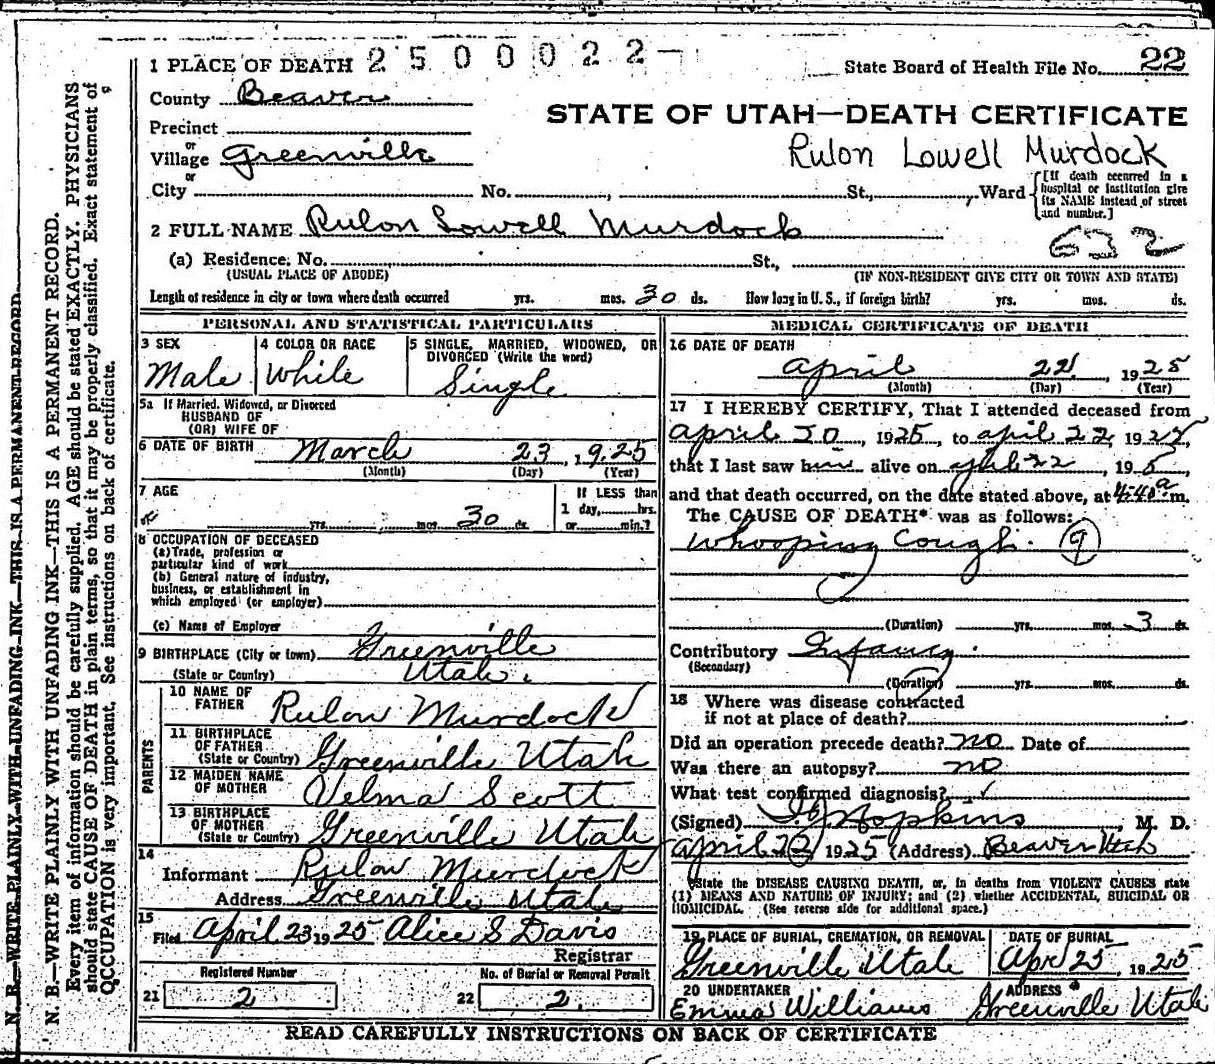 2500022
1 PLACE OF DEATH
State Board of Health File No. 22
County Beaver
STATE OF UTAH—DEATH CERTIFICATE
Precinct
or
Village Greenville
Rulon Lowell Murdock
or
City No. , St., Ward
[If death occurred in a hospital or institution give its NAME instead of street and number.]
2 FULL NAME Rulon Lowell Murdock
632
(a) Residence; No. St.,
(USUAL PLACE OF ABODE) (IF NON-RESIDENT GIVE CITY OR TOWN AND STATE)
Length of residence in city or town where death occurred yrs. mos. 30 ds. How long in U. S., if foreign birth? yrs. mos. ds.
PERSONAL AND STATISTICAL PARTICULARS
3 SEX
Male
4 COLOR OR RACE
White
5 SINGLE, MARRIED, WIDOWED, OR
DIVORCED (Write the word)
Single
5a If Married, Widowed, or Divorced
HUSBAND OF
(OR) WIFE OF
6 DATE OF BIRTH March 23, 1925
(Month) (Day) (Year)
7 AGE
yrs. mos. 30 ds.
If LESS than
1 day, hrs.
or min.?
8 OCCUPATION OF DECEASED
(a) Trade, profession or
particular kind of work
(b) General nature of industry,
business, or establishment in
which employed (or employer)
(c) Name of Employer
9 BIRTHPLACE (City or town) Greenville
(State or Country) Utah.
PARENTS
10 NAME OF
FATHER Rulon Murdock
11 BIRTHPLACE
OF FATHER
(State or Country) Greenville Utah
12 MAIDEN NAME
OF MOTHER Velma Scott
13 BIRTHPLACE
OF MOTHER
(State or Country) Greenville Utah
14
Informant Rulon Murdock
Address Greenville Utah
15
Filed April 23 1925 Alice S Davis
Registrar
Registered Number No. of Burial or Removal Permit
21 2 22 2
MEDICAL CERTIFICATE OF DEATH
16 DATE OF DEATH
April 22, 1925
(Month) (Day) (Year)
17 I HEREBY CERTIFY, That I attended deceased from
April 20, 1925, to April 22, 1925,
that I last saw him alive on April 22, 195
and that death occurred, on the date stated above, at 4:40 a m.
The CAUSE OF DEATH* was as follows:
Whooping Cough. 9
(Duration) yrs. mos. 3 ds.
Contributory Infancy.
(Secondary)
(Duration) yrs. mos. ds.
18 Where was disease contracted
if not at place of death?
Did an operation precede death? no Date of
Was there an autopsy? no
What test confirmed diagnosis?
(Signed) Hopkins, M. D.
April 22 1925 (Address) Beaver Utah
*State the DISEASE CAUSING DEATH, or, in deaths from VIOLENT CAUSES state
(1) MEANS AND NATURE OF INJURY; and (2) whether ACCIDENTAL, SUICIDAL OR
HOMICIDAL. (See reverse side for additional space.)
19 PLACE OF BURIAL, CREMATION, OR REMOVAL
Greenville Utah
DATE OF BURIAL
Apr 25, 1925
20 UNDERTAKER
Emma Williams
ADDRESS
Greenville Utah
READ CAREFULLY INSTRUCTIONS ON BACK OF CERTIFICATE
N. B.—WRITE PLAINLY WITH UNFADING INK—THIS IS A PERMANENT RECORD
N. B.—WRITE PLAINLY WITH UNFADING INK—THIS IS A PERMANENT RECORD.
Every item of information should be carefully supplied. AGE should be stated EXACTLY. PHYSICIANS
should state CAUSE OF DEATH in plain terms, so that it may be properly classified. Exact statement of
OCCUPATION is very important. See instructions on back of certificate.